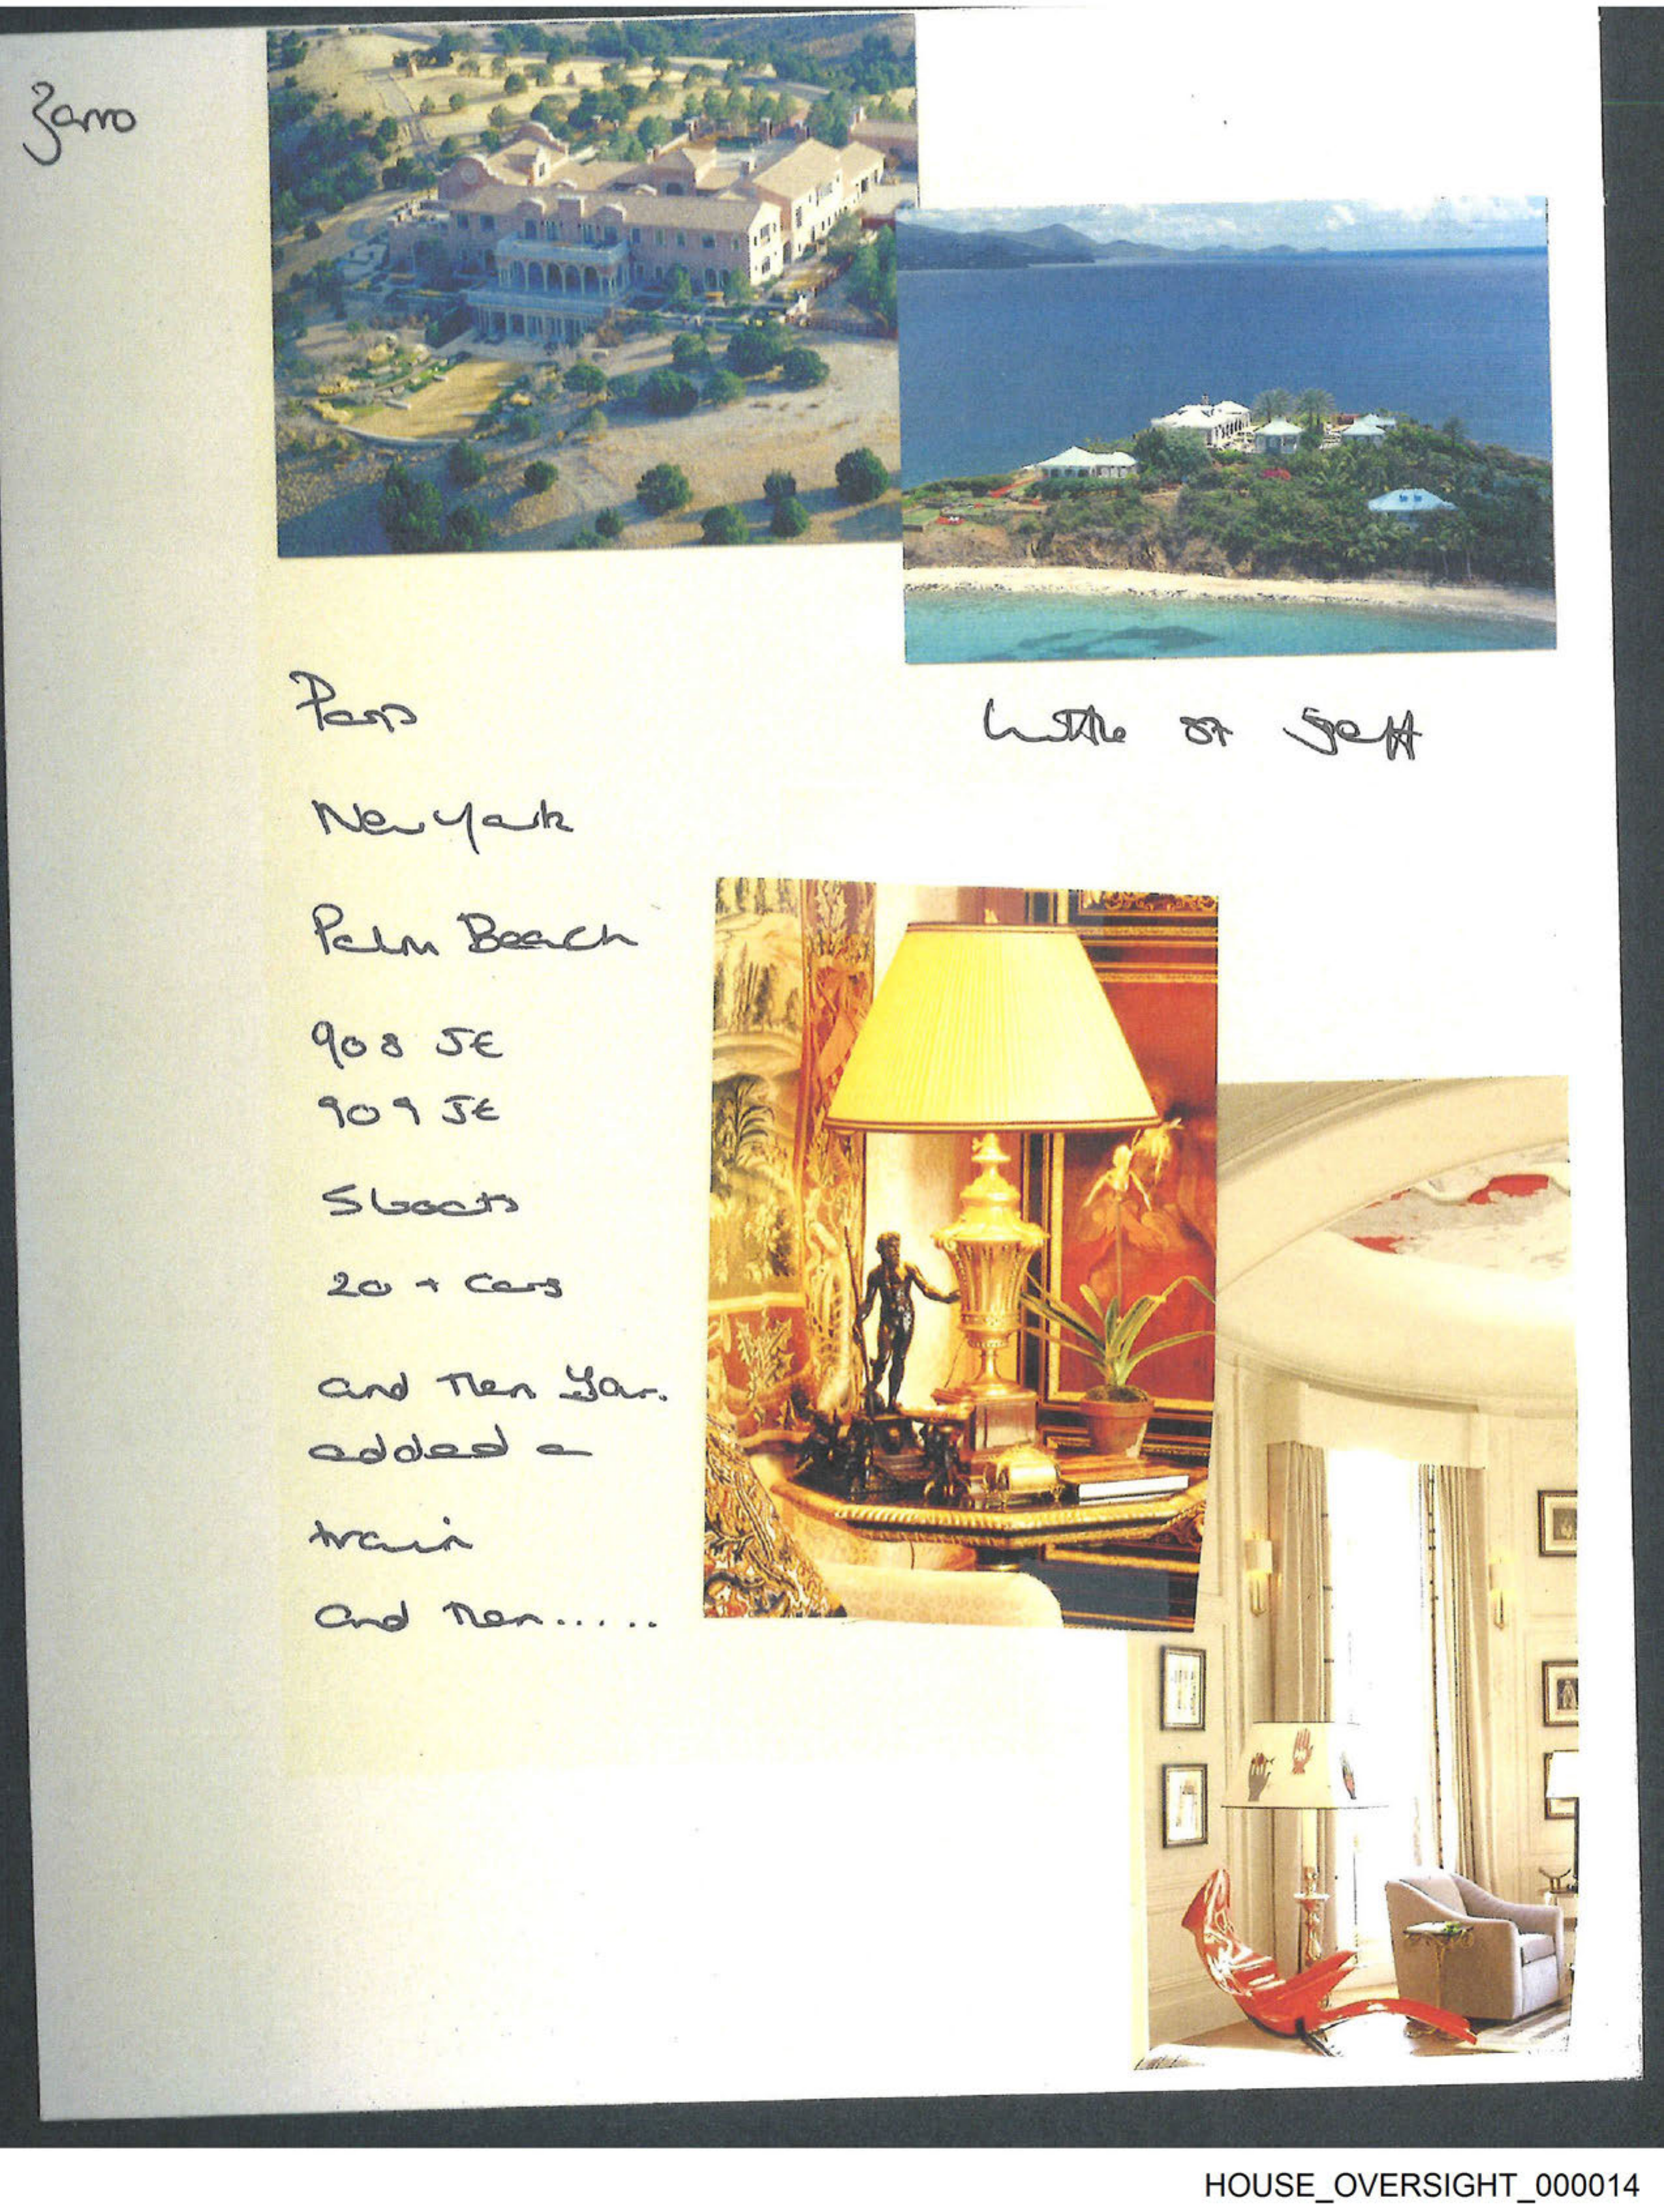 Zorro
Paris
Little St Jeff
New York
Palm Beach
908 JE
909 JE
5 boats
20 + Cars
and then you
added a
train
and then.....
HOUSE_OVERSIGHT_000014